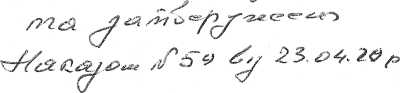 та затверджено
Наказом № 59 від 23.04.20р